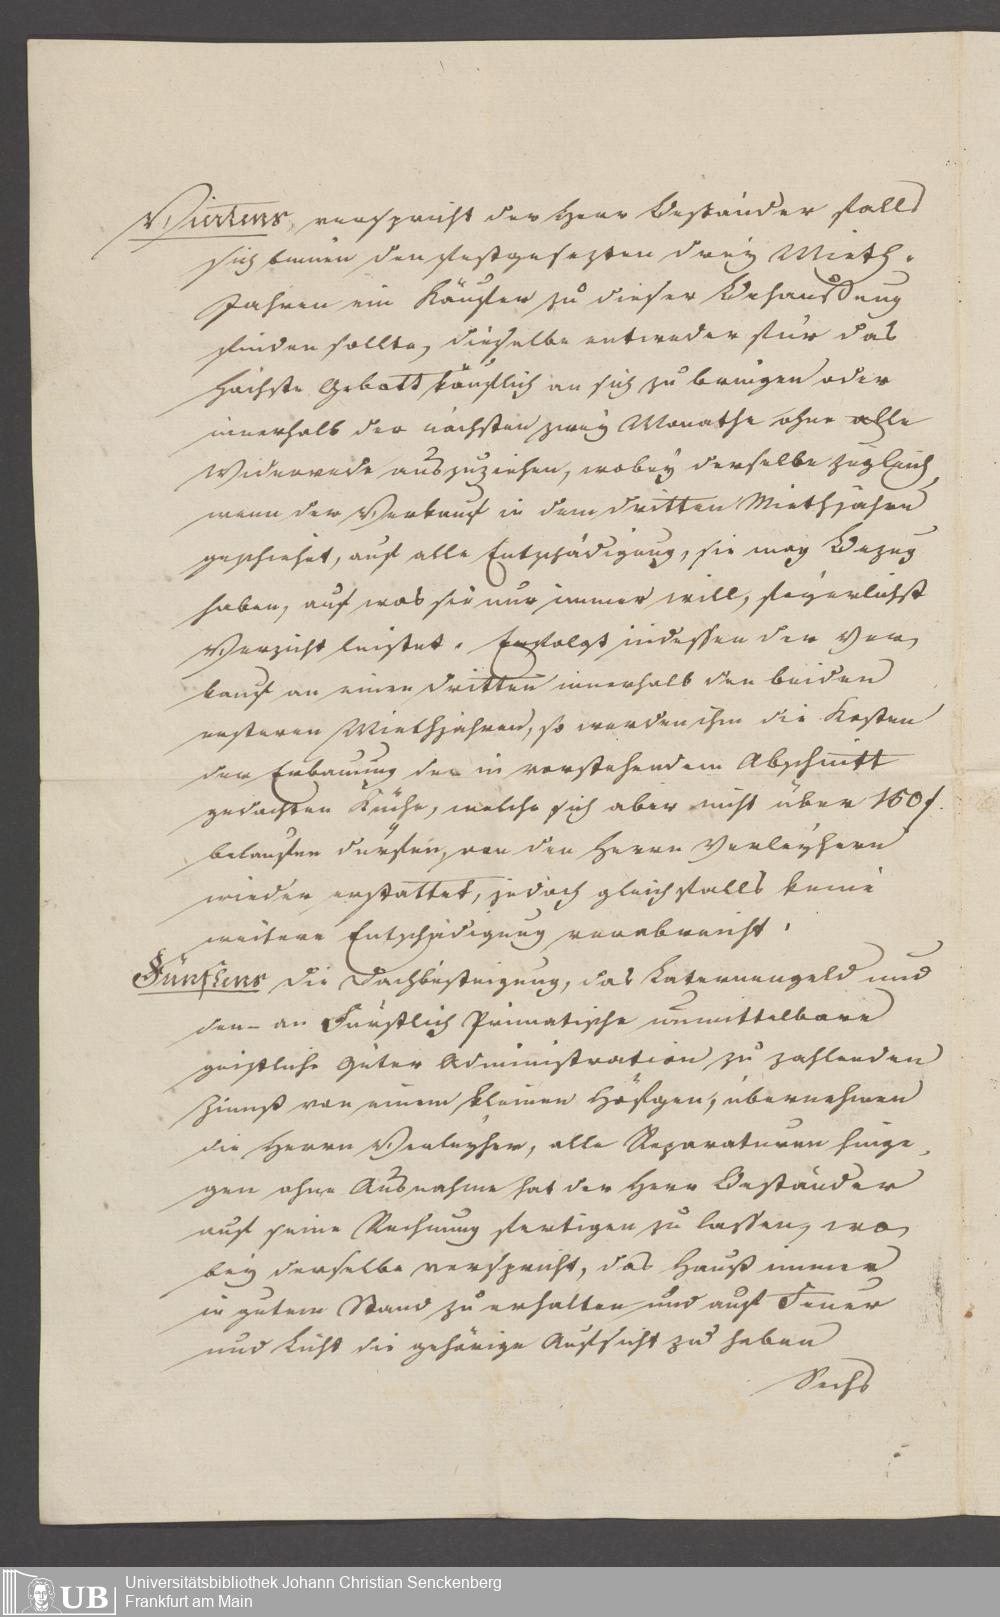 Viertens, verspricht der Herr Beständer falls
sich binnen den festgesezten drey Mieth-
Jahren ein Käufer zu dieser Behaußung
finden sollte, dieselbe entweder für das
höchste Gebott käuflich an sich zu bringen oder
innerhalb der nächsten zwey Monathe ohne alle
Widerrede auszuziehen, wobey derselbe zugleich,
wenn der Verkauf in dem dritten Miethjahre
geschiehet, auf alle Entschädigung, sie mag Bezug
haben, auf was sie nur immer will, feyerlichst
Verzicht leistet. Erfolgt indessen der Ver-
kauf an einen dritten innerhalb den beiden
ersteren Miethjahren, so werden ihm die Kosten
der Erbauung der in vorstehendem Abschnitt
gedachten Küche, welche sich aber nicht über 150 f.
belaufen dürfen, von den Herrn Verleyhern
wieder erstattet, jedoch gleichfalls keine
weitere Entschädigung verabreicht.
Fünftens die Dachbesteigung, das Laternengeld und
den an Fürstlich Primatische unmittelbare
geistliche Güter Administration zu zahlenden
Zinnß von einem kleinen Höfgen, übernehmen
die Herrn Verleyher, alle Reparaturen hinge-
gen ohne Ausnahme hat der Herr Beständer
auf seine Rechnung fertigen zu lassen, wo-
bey derselbe verspricht, das Hauß immer
in gutem Stand zu erhalten und auf Feuer
und Licht die gehörige Aufsicht zu haben
Sechs
UB
Universitätsbibliothek Johann Christian Senckenberg
Frankfurt am Main